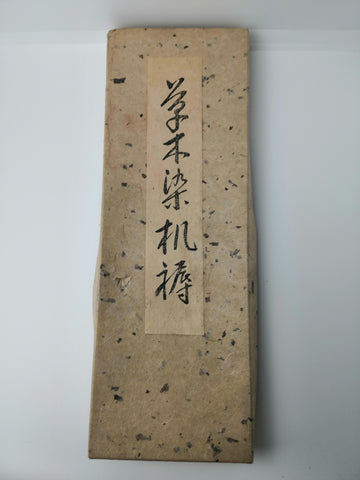 草木染机褥